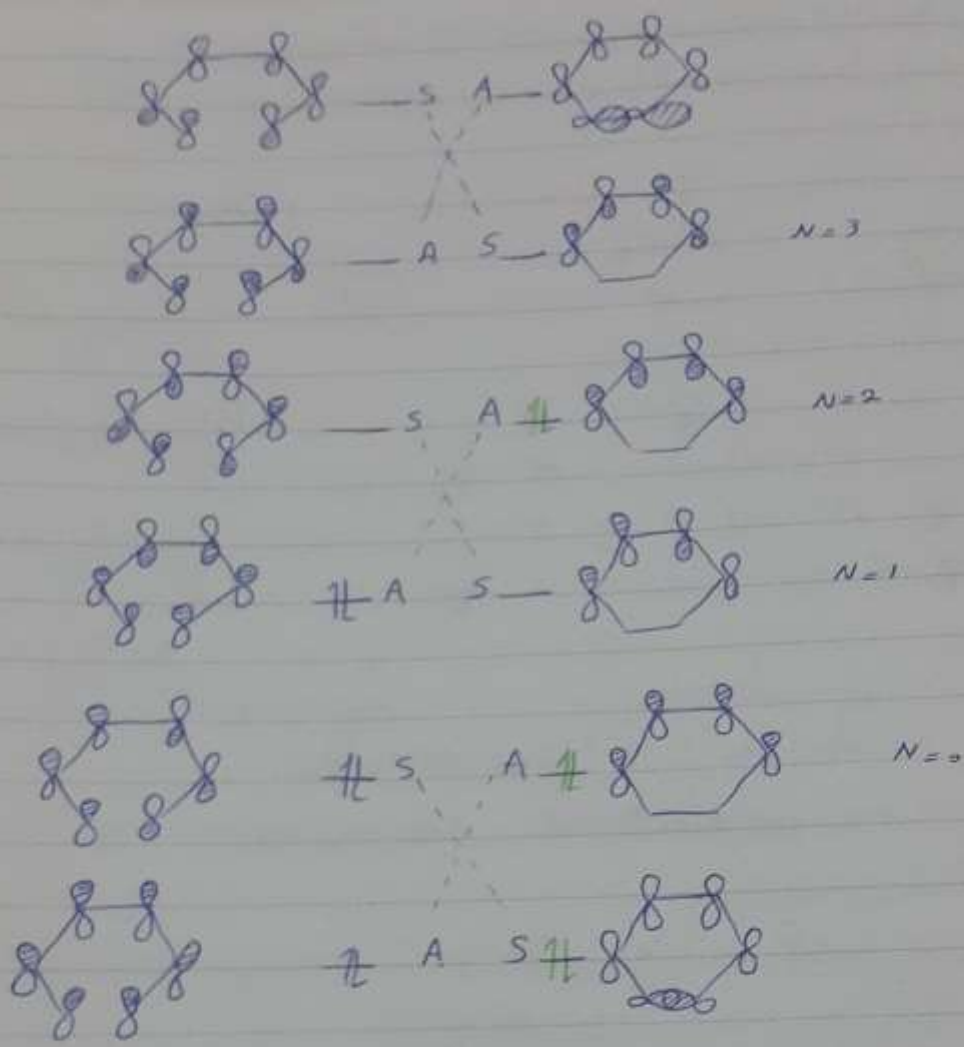 S A
A S N=3
S A N=2
A S N=1
S A N=0
A S